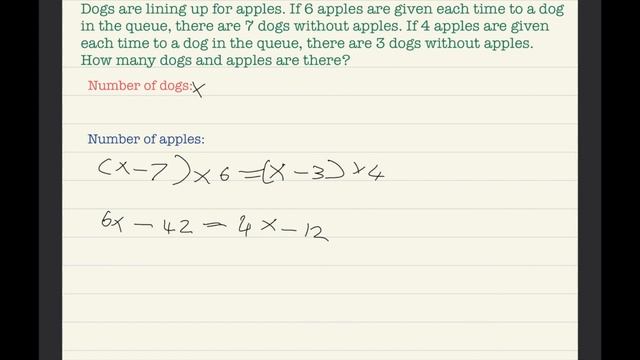 Dogs are lining up for apples. If 6 apples are given each time to a dog
in the queue, there are 7 dogs without apples. If 4 apples are given
each time to a dog in the queue, there are 3 dogs without apples.
How many dogs and apples are there?
Number of dogs: x
Number of apples:
(x-7) × 6 = (x-3) × 4
6x - 42 = 4x - 12